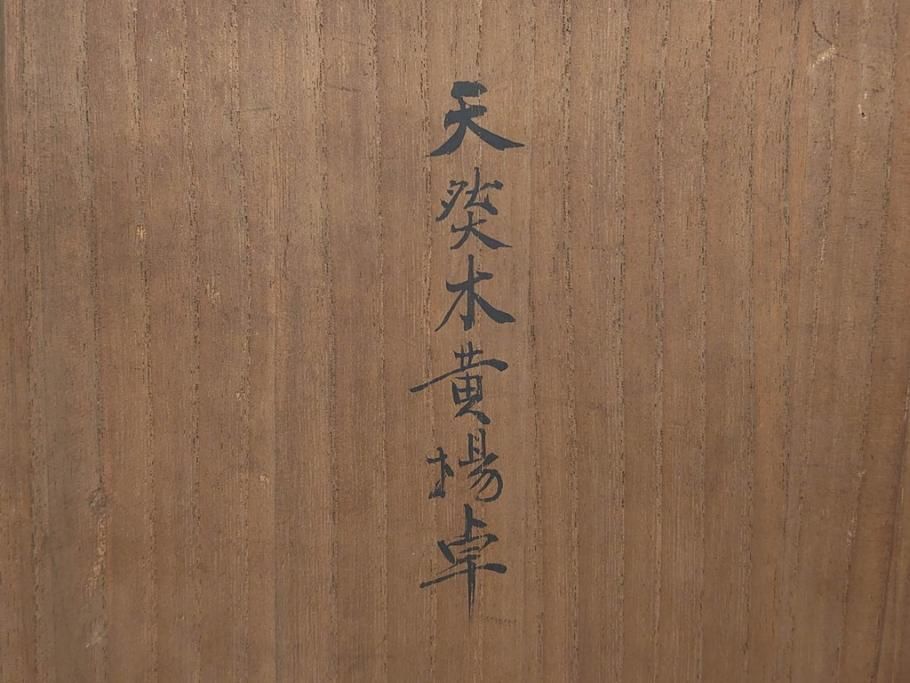 天然木黄楊卓